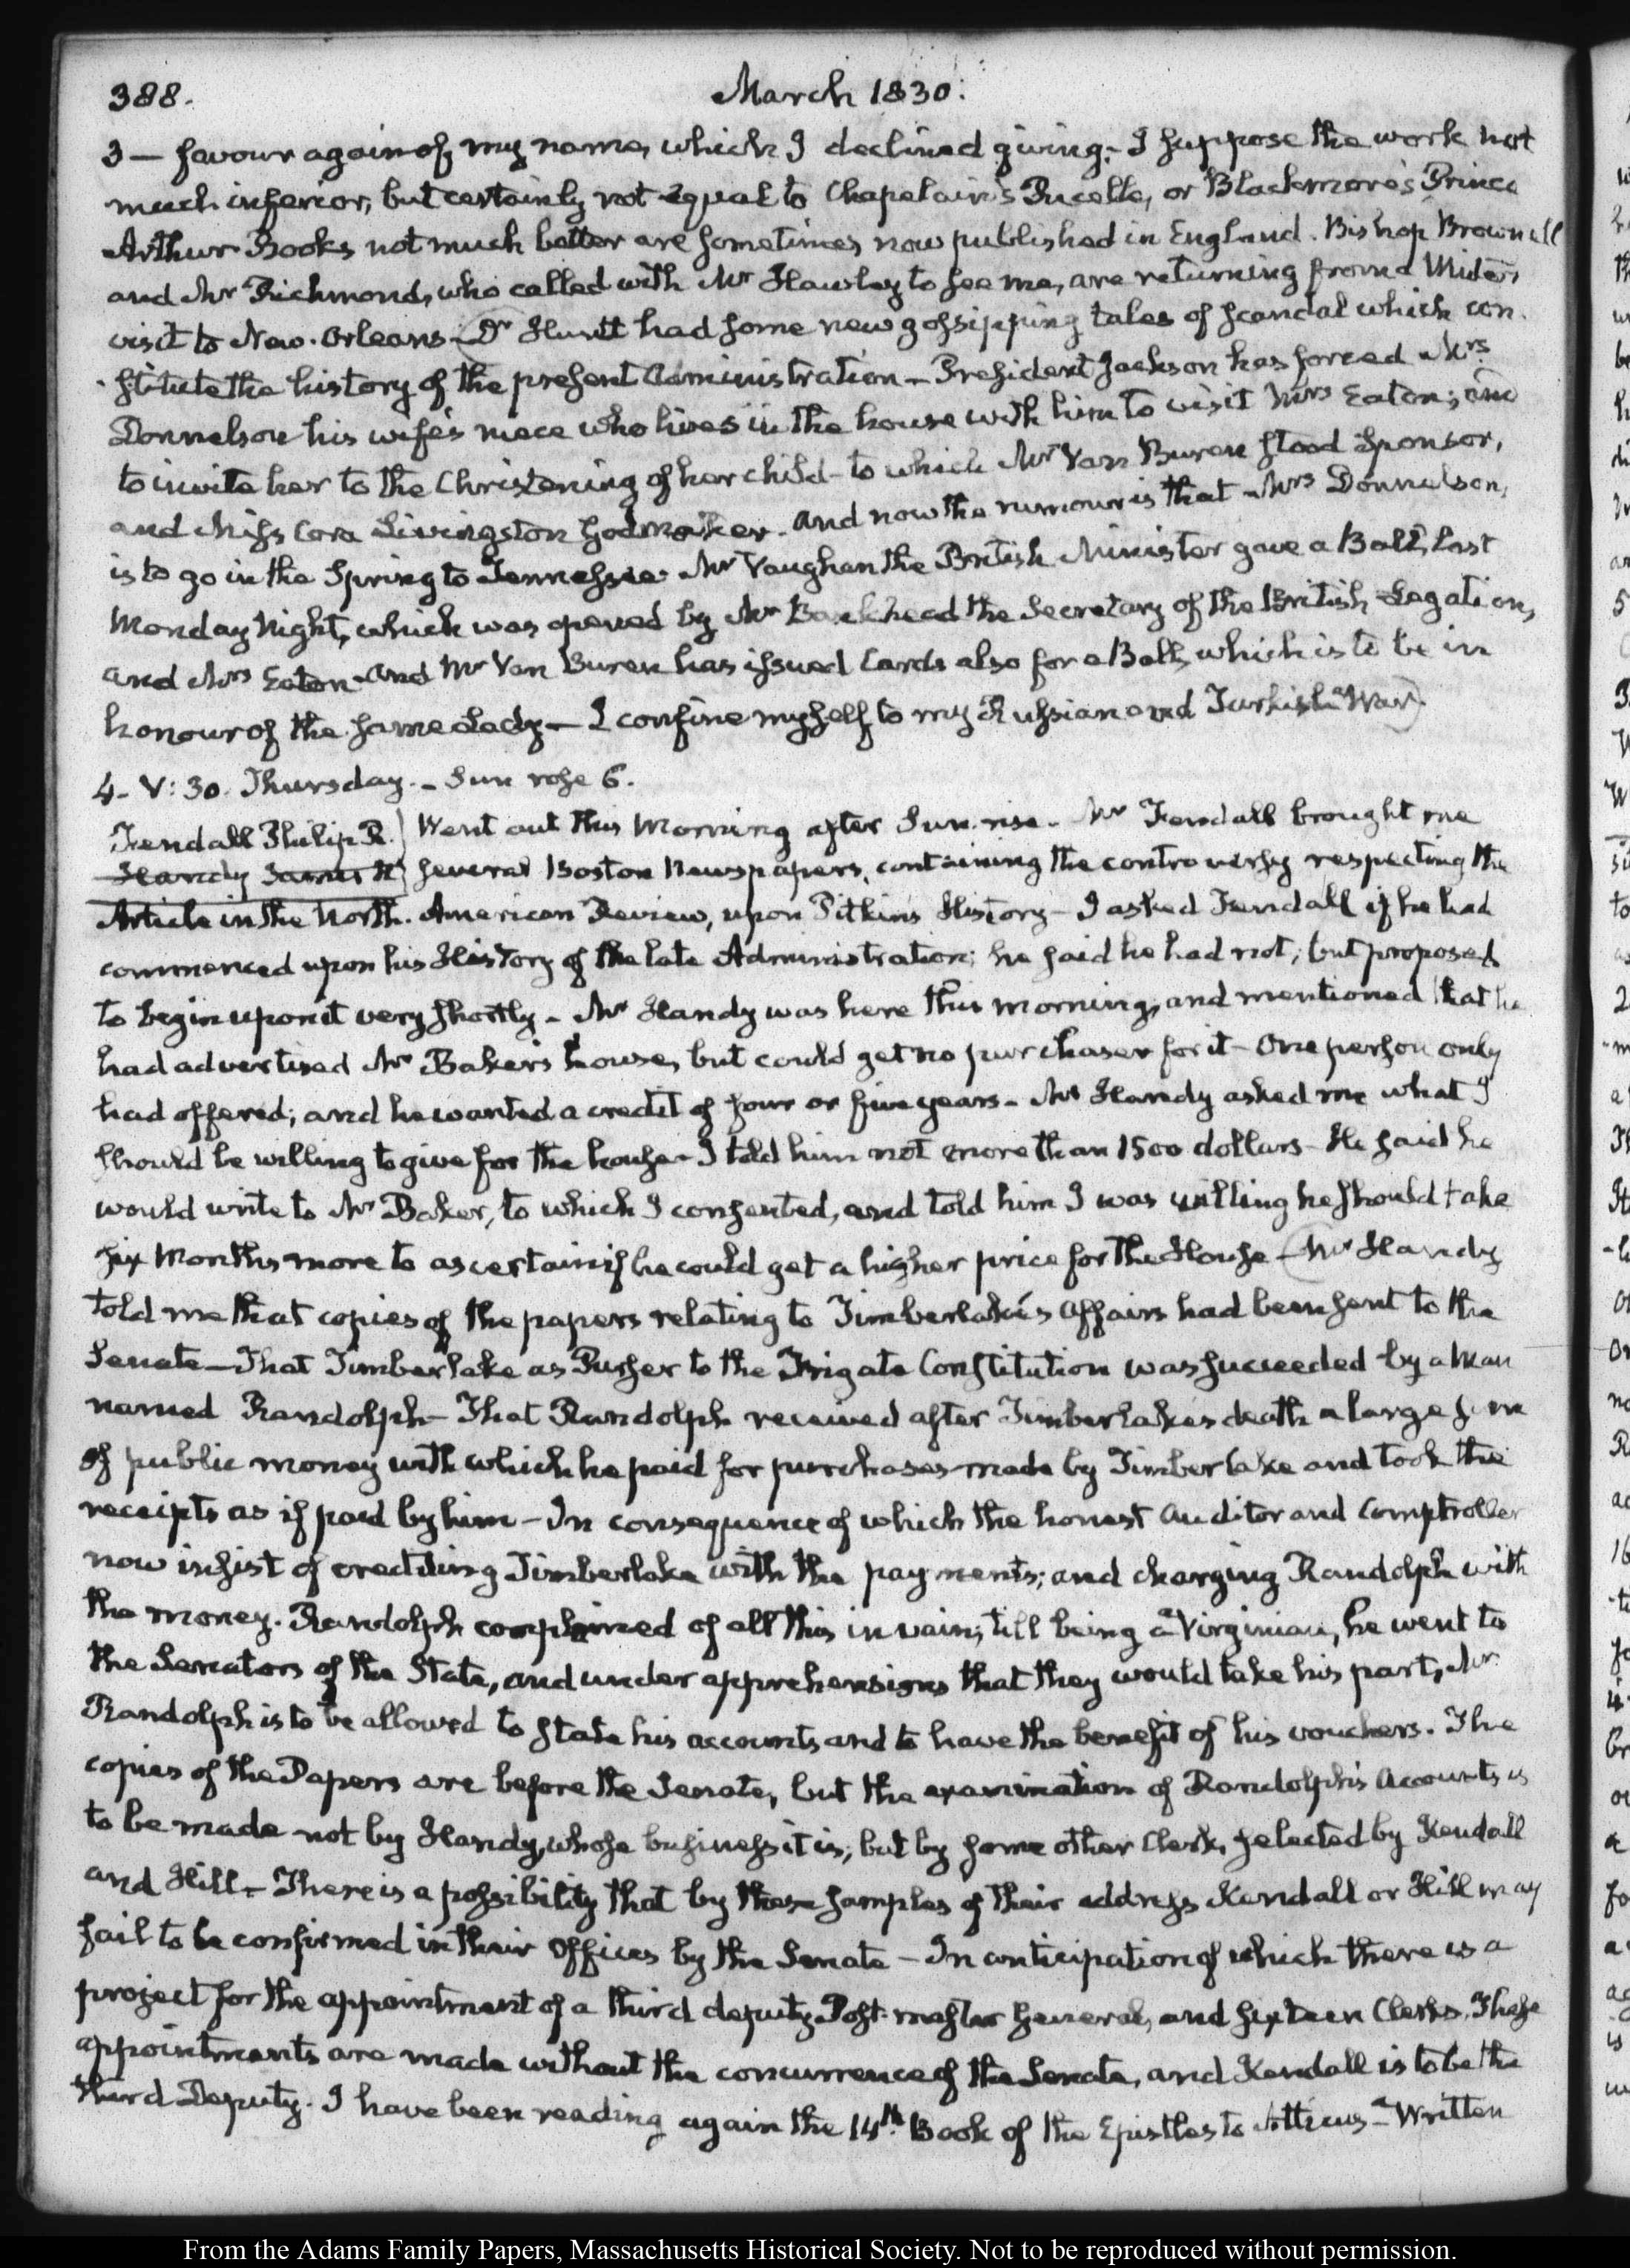 388.
March 1830.
3 — favour again of my name, which I declined giving. — I suppose the work not
much inferior, but certainly not equal to Chapelain's Pucelle, or Blackmore's Prince
Arthur. Books not much better are sometimes now published in England. Bishop Brownell
and Mr Richmond, who called with Mr Hawley to see me, are returning from a
visit to New-Orleans — Dr Huntt had some new gossipping tales of scandal which con-
-stitute the history of the present Administration — President Jackson has forced Mrs
Donnelson his wife's niece who lives in the house with him to visit Mrs Eaton; and
to invite her to the Christening of her child — to which Mr Van Buren stood Sponsor,
and Miss Cora Livingston Godmother. And now the rumour is that Mrs Donnelson,
is to go in the Spring to Tennessee. Mr Vaughan the British Minister gave a Ball, last
Monday Night, which was opened by Mr Bankhead the Secretary of the British Legation,
and Mrs Eaton — and Mr Van Buren has issued Cards also for a Ball, which is to be in
honour of the same Lady — I confine myself to my Russian and Turkish War.
4 — V: 30. Thursday. — Sun rose 6.
Fendall Philip R. Went out this Morning after Sun-rise. Mr Fendall brought me
Handy Samuel several Boston Newspapers, containing the controversy respecting the
Article in the North-American Review, upon Pitkin's History — I asked Fendall if he had
commenced upon his History of the late Administration; he said he had not; but proposed
to begin upon it very shortly — Mr Handy was here this morning, and mentioned that he
had advertised Mr Baker's house, but could get no purchaser for it — One person only
had offered; and he wanted a credit of four or five years — Mr Handy asked me what I
should be willing to give for the house — I told him not more than 1500 dollars — He said he
would write to Mr Baker, to which I consented, and told him I was willing he should take
six Months more to ascertain if he could get a higher price for the House — Mr Handy
told me that copies of the papers relating to Timberlake's Affairs had been sent to the
Senate — That Timberlake as Purser to the Frigate Constitution was succeeded by a Man
named Randolph — That Randolph received after Timberlake's death a large sum
of public money with which he paid for purchases made by Timberlake and took the
receipts as if paid by him — In consequence of which the honest Auditor and Comptroller
now insist of crediting Timberlake with the payments; and charging Randolph with
the money. Randolph complained of all this in vain; till being a Virginian, he went to
the Senators of the State, and under apprehensions that they would take his part, Mr
Randolph is to be allowed to state his accounts and to have the benefit of his vouchers. The
copies of the Papers are before the Senate, but the examination of Randolph's Accounts is
to be made not by Handy, whose business it is; but by some other Clerk, selected by Kendall
and Hill — There is a possibility that by these samples of their address Kendall or Hill may
fail to be confirmed in their Offices by the Senate — In anticipation of which there is a
project for the appointment of a third deputy Post-master General, and sixteen Clerks. These
appointments are made without the concurrence of the Senate, and Kendall is to be the
third Deputy. I have been reading again the 14th Book of the Epistles to Atticus — Written
From the Adams Family Papers, Massachusetts Historical Society. Not to be reproduced without permission.